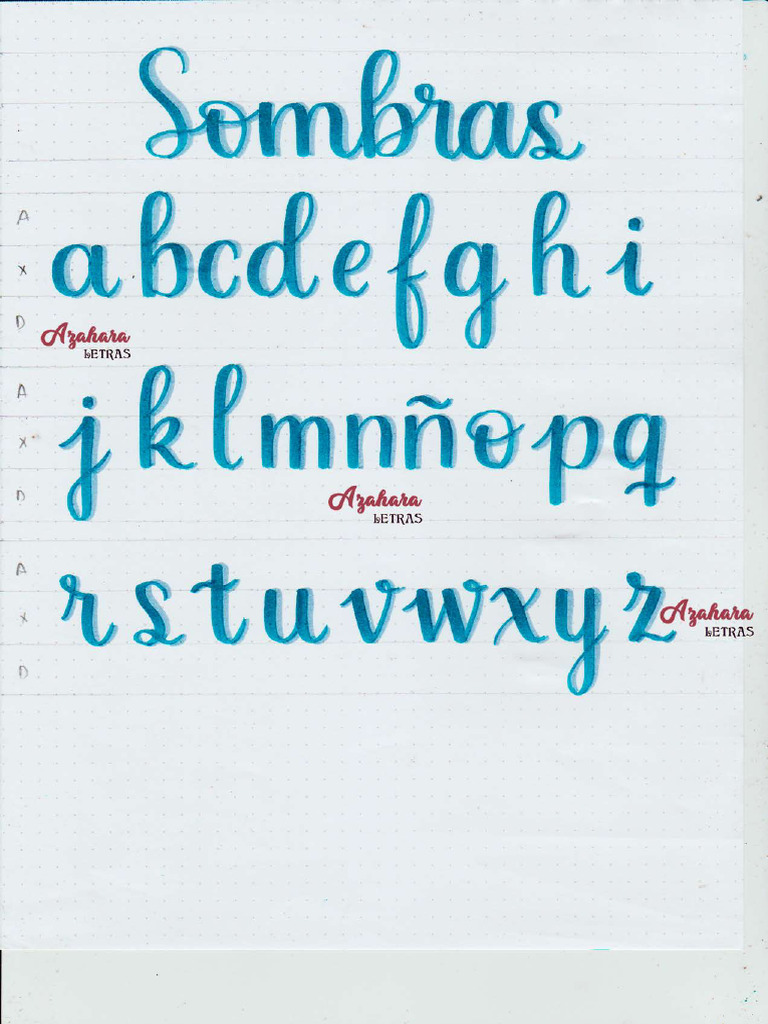 Sombras
A
a b c d e f g h i
x
D
Azahara
LETRAS
A
j k l m n ñ o p q
x
D
Azahara
LETRAS
A
r s t u v w x y z
x
Azahara
LETRAS
D